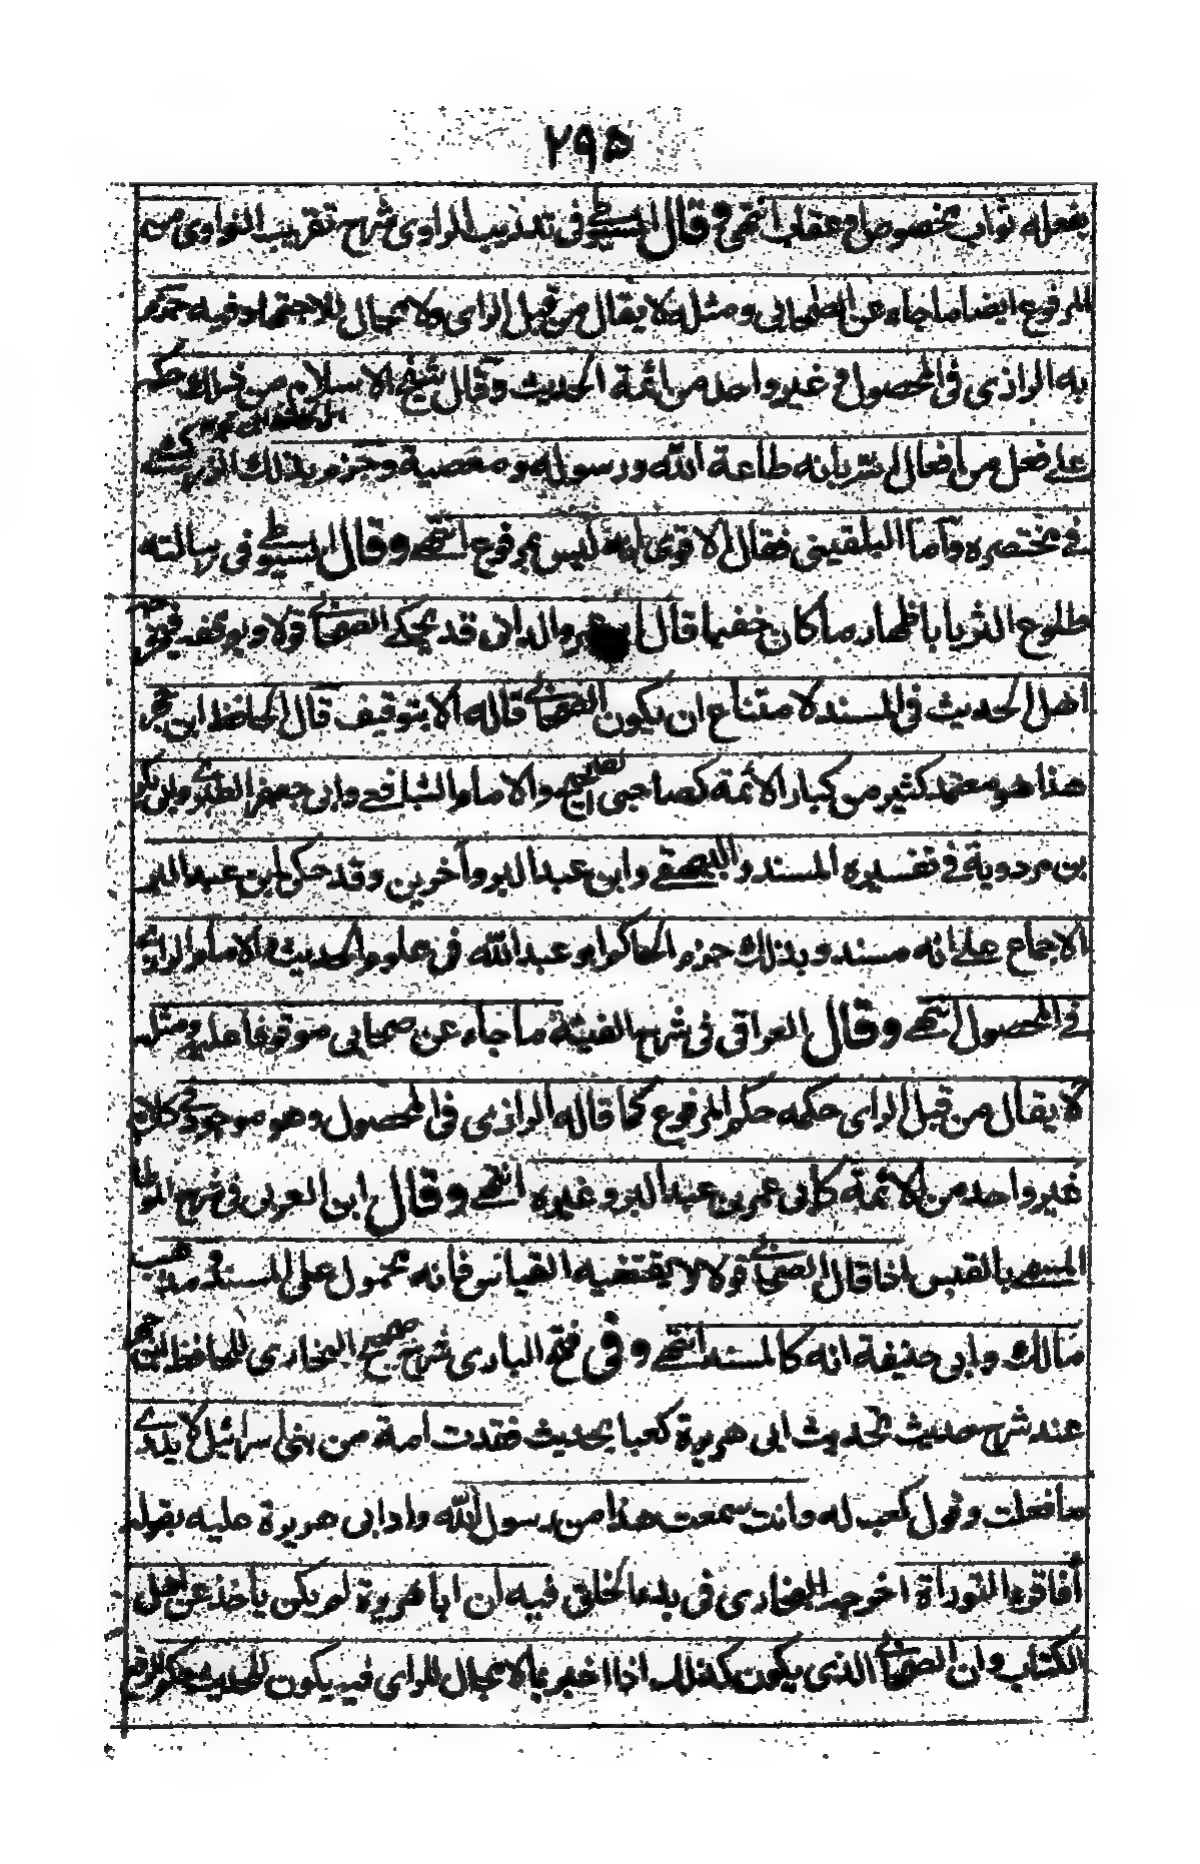 ٢٩٥
يفعله ثواب مخصوص او عقاب انتهى وقال السيوطي في تدريب الراوي شرح تقريب النواوي من
المرفوع ايضا ما جاء عن الصحابي ومثله لا يقال من قبل الراى ولا مجال للاجتهاد فيه جزم
به الرازى فى المحصول و غير واحد من ائمة الحديث وقال شيخ الاسلام من ذلك حكمه
على فعل من افعال بانه طاعة الله ورسوله و معصية وجزم بذلك الزركشى
فى مختصره وأما البلقينى فقال الاقوى انه ليس بمرفوع انتهى وقال السيوطي فى رسالته
طلوع الثريا باظهار ما كان خفيا قال والدان قد يحكى الصحابي قولا
اهل الحديث فى المسند لامتناع ان يكون الصحابي قاله الا بتوقيف قال الحافظ ابن حجر
هذا هو معتمد كثير من كبار الائمة كصاحبى الصحيح والامام الشافعى وابى جعفر الطبرى وابى بكر
بن مردوية فى تفسيره المسند والبيهقى وابن عبد البر وآخرين وقد حكى ابن عبد البر
الاجماع على انه مسند وبذلك جزم الحاكم ابو عبد الله فى علوم الحديث والامام الرازى
فى المحصول انتهى وقال العراقى فى شرح الفيته ما جاء عن صحابى موقوفا عليه ومثله
لا يقال من قبل الراى حكمه حكم المرفوع كما قاله الرازى فى المحصول وهو موجود فى كلام
غير واحد من الائمة كابى عمر بن عبد البر وغيره انتهى وقال ابن العربى فى شرح الموطا
المسمى بالقبس اذا قال الصحابي قولا لا يقتضيه القياس فانه محمول على المسند فى مذهب
مالك وابى حنيفة انه كالمسند انتهى وفى فتح البارى شرح صحيح البخارى للحافظ ابن حجر
عند شرح حديث تحديث ابى هريرة كعبا بحديث فقدت امة من بنى اسرائيل لا يدرى
ما فعلت وقول كعب له وانت سمعت هذا من رسول الله وارد ابى هريرة عليه بقوله
أفاقرء التوراة اخرجه البخارى فى بدء الخلق فيه ان ابا هريرة لم يكن ياخذ عن اهل
الكتاب وان الصحابي الذى يكون كذلك اذا اخبر بما لا مجال للراى فيه يكون للحديث حكم الرفع